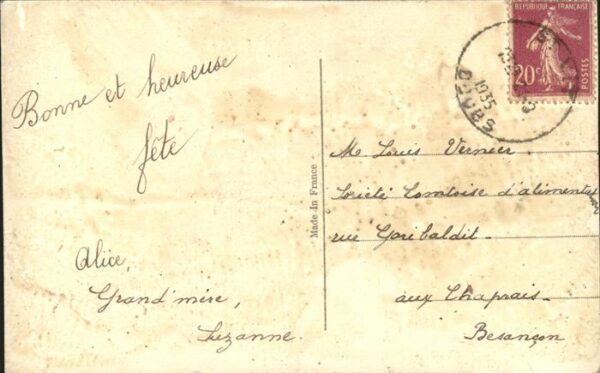 Bonne et heureuse
fête
Alice,
Grand'mère,
Suzanne.
Made In France
REPUBLIQUE FRANÇAISE
20c
POSTES
1935
DOUBS
M. Louis Vernier
Société Comtoise d'alimentat
rue Garibaldit
aux Chaprais
Besançon